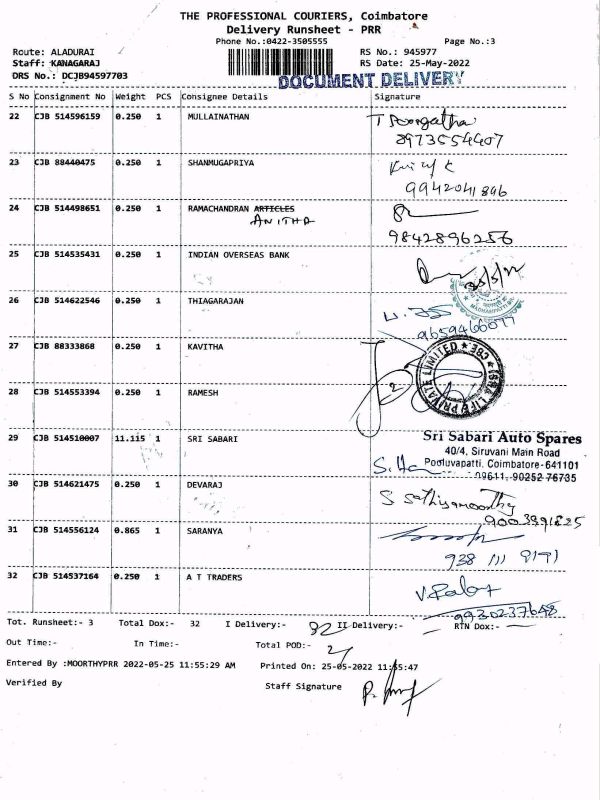 THE PROFESSIONAL COURIERS, Coimbatore
Delivery Runsheet - PRR
Phone No.:0422-3505555 Page No.:3
Route: ALADURAI RS No.: 945977
Staff: KANAGARAJ RS Date: 25-May-2022
DRS No.: DCJB94597703
DOCUMENT DELIVERY
S No Consignment No Weight PCS Consignee Details Signature
22 CJB 514596159 0.250 1 MULLAINATHAN
8973554407
23 CJB 88440475 0.250 1 SHANMUGAPRIYA
9942041896
24 CJB 514498651 0.250 1 RAMACHANDRAN ARTICLES
ANITHA
9842896256
25 CJB 514535431 0.250 1 INDIAN OVERSEAS BANK
26 CJB 514622546 0.250 1 THIAGARAJAN
27 CJB 88333868 0.250 1 KAVITHA
LIFE PRIVATE LIMITED ★ CBE
28 CJB 514553394 0.250 1 RAMESH
29 CJB 514510007 11.115 1 SRI SABARI
Sri Sabari Auto Spares
40/4, Siruvani Main Road
Pooluvapatti, Coimbatore-641101
09611, 90252 76735
30 CJB 514621475 0.250 1 DEVARAJ
S Sathiyamoorthy
9003391825
31 CJB 514556124 0.865 1 SARANYA
938 111 9191
32 CJB 514537164 0.250 1 A T TRADERS
9930237648
Tot. Runsheet:- 3 Total Dox:- 32 I Delivery:- 32 II Delivery:- RTN Dox:-
Out Time:- In Time:- Total POD:-
Entered By :MOORTHYPRR 2022-05-25 11:55:29 AM Printed On: 25-05-2022 11:55:47
Verified By Staff Signature